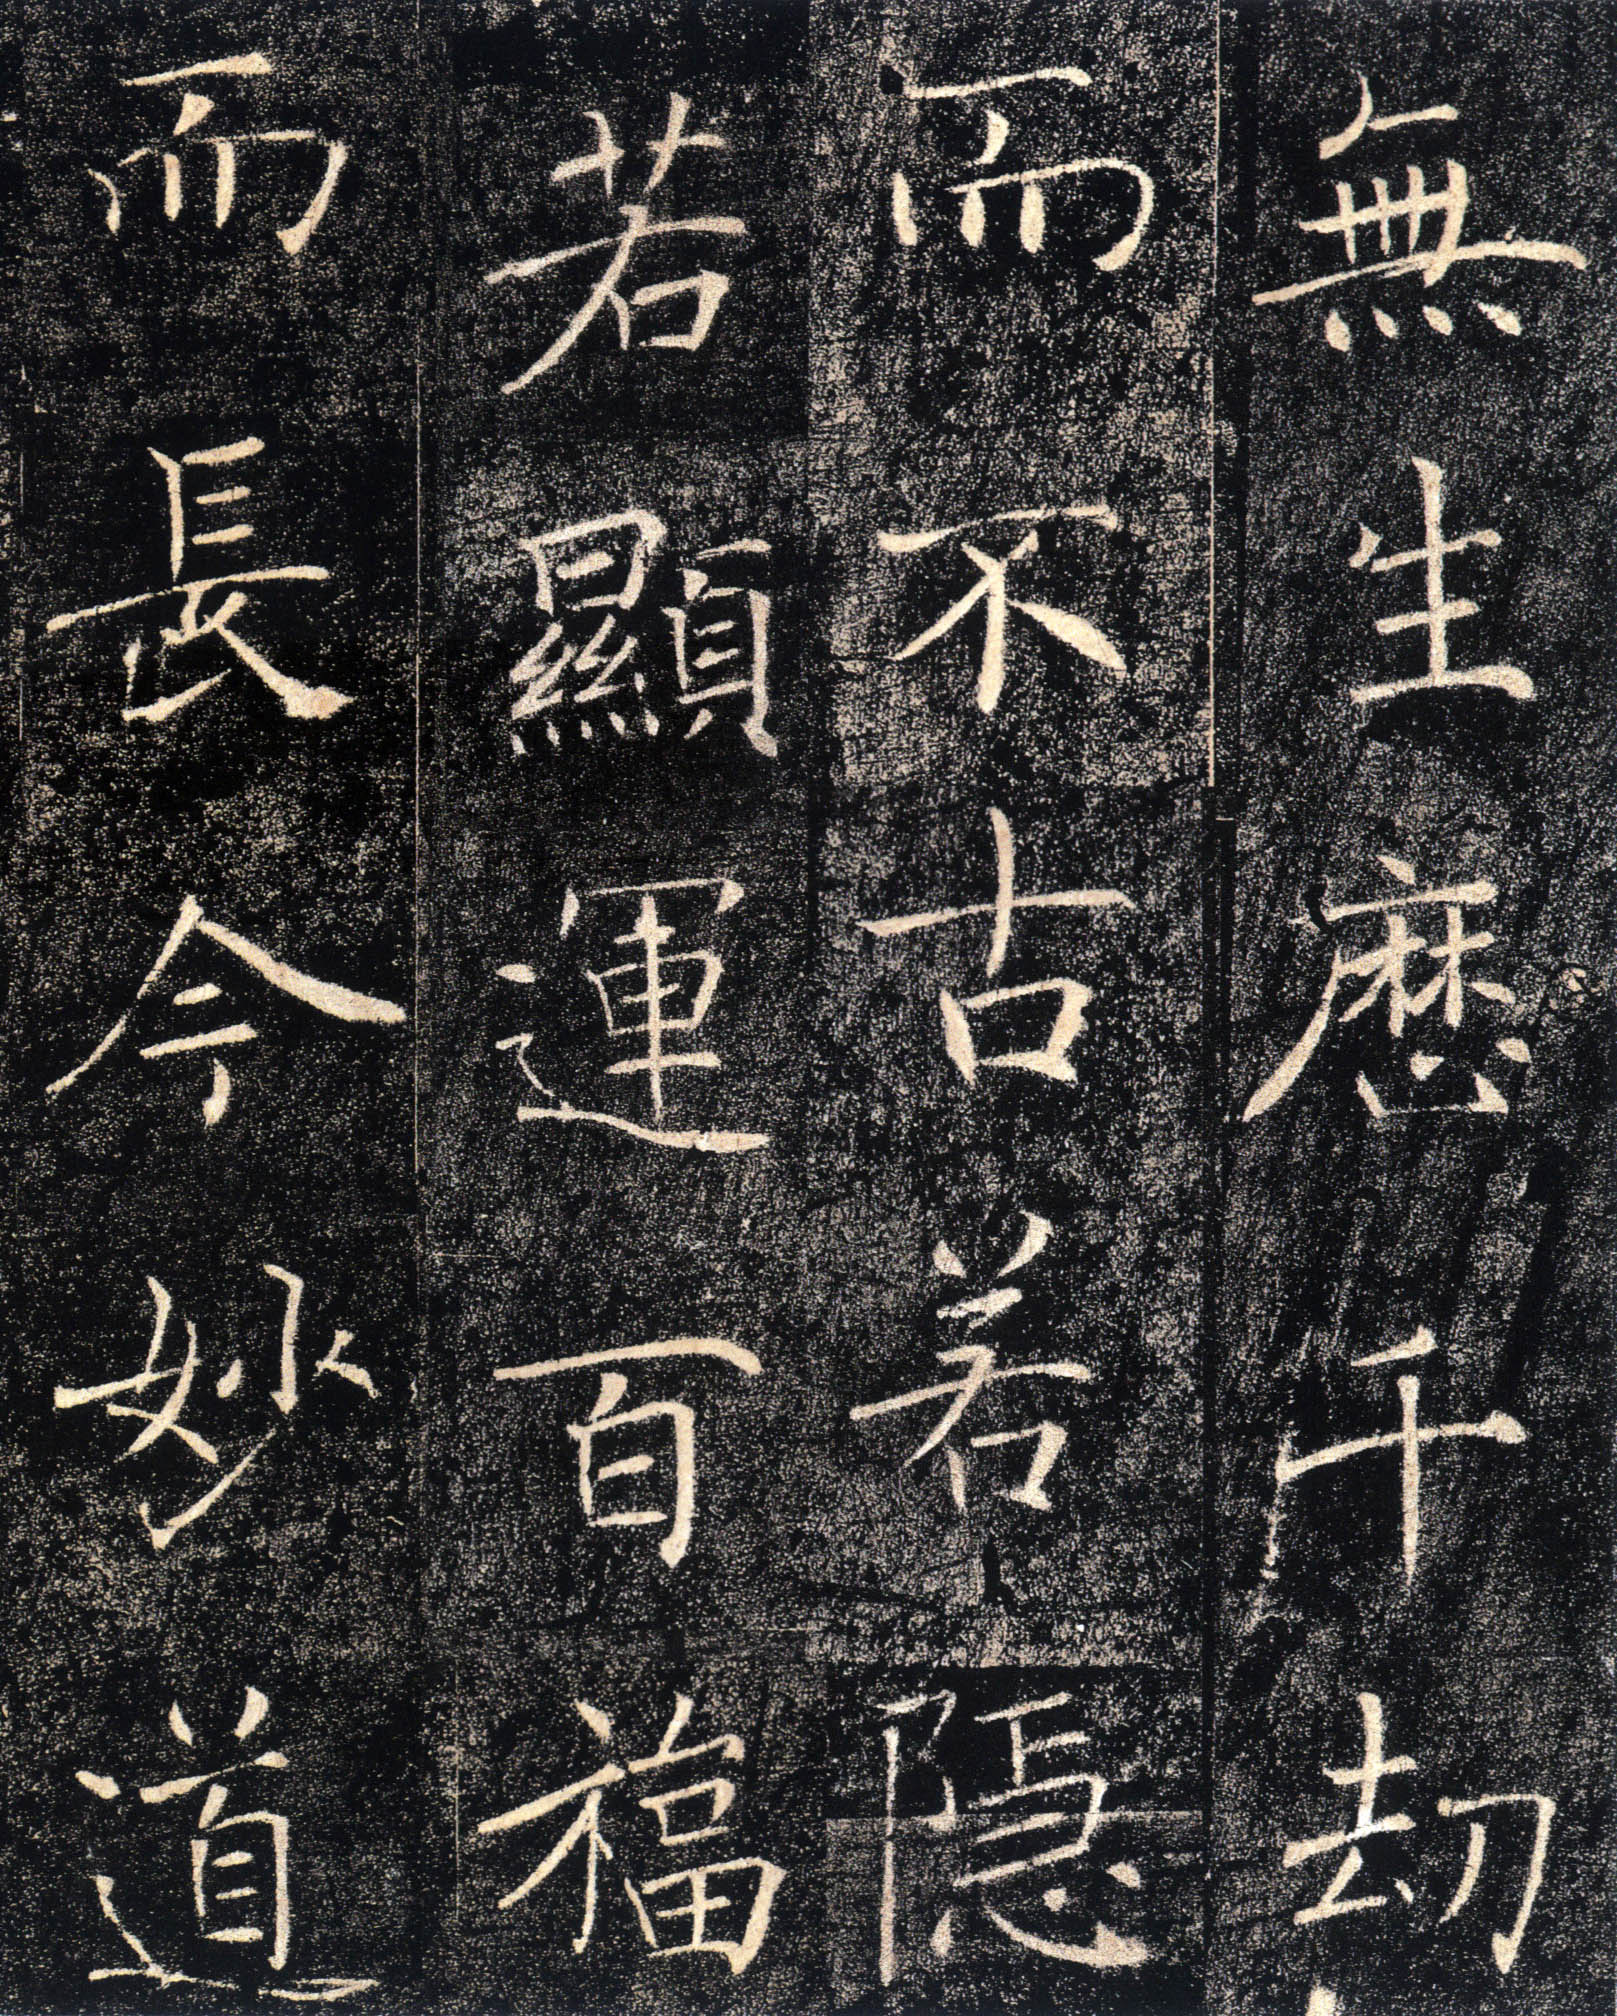 無生歷千劫
而不古若隱
若顯運百福
而長今妙道